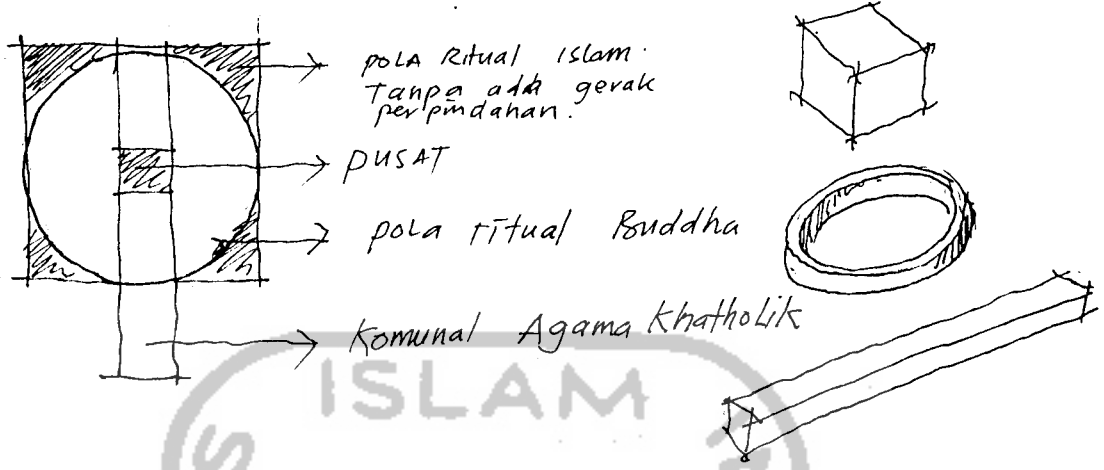 pola Ritual Islam.
Tanpa ada gerak
perpindahan.
PUSAT
pola ritual Buddha
Komunal Agama Khatholik
ISLAM